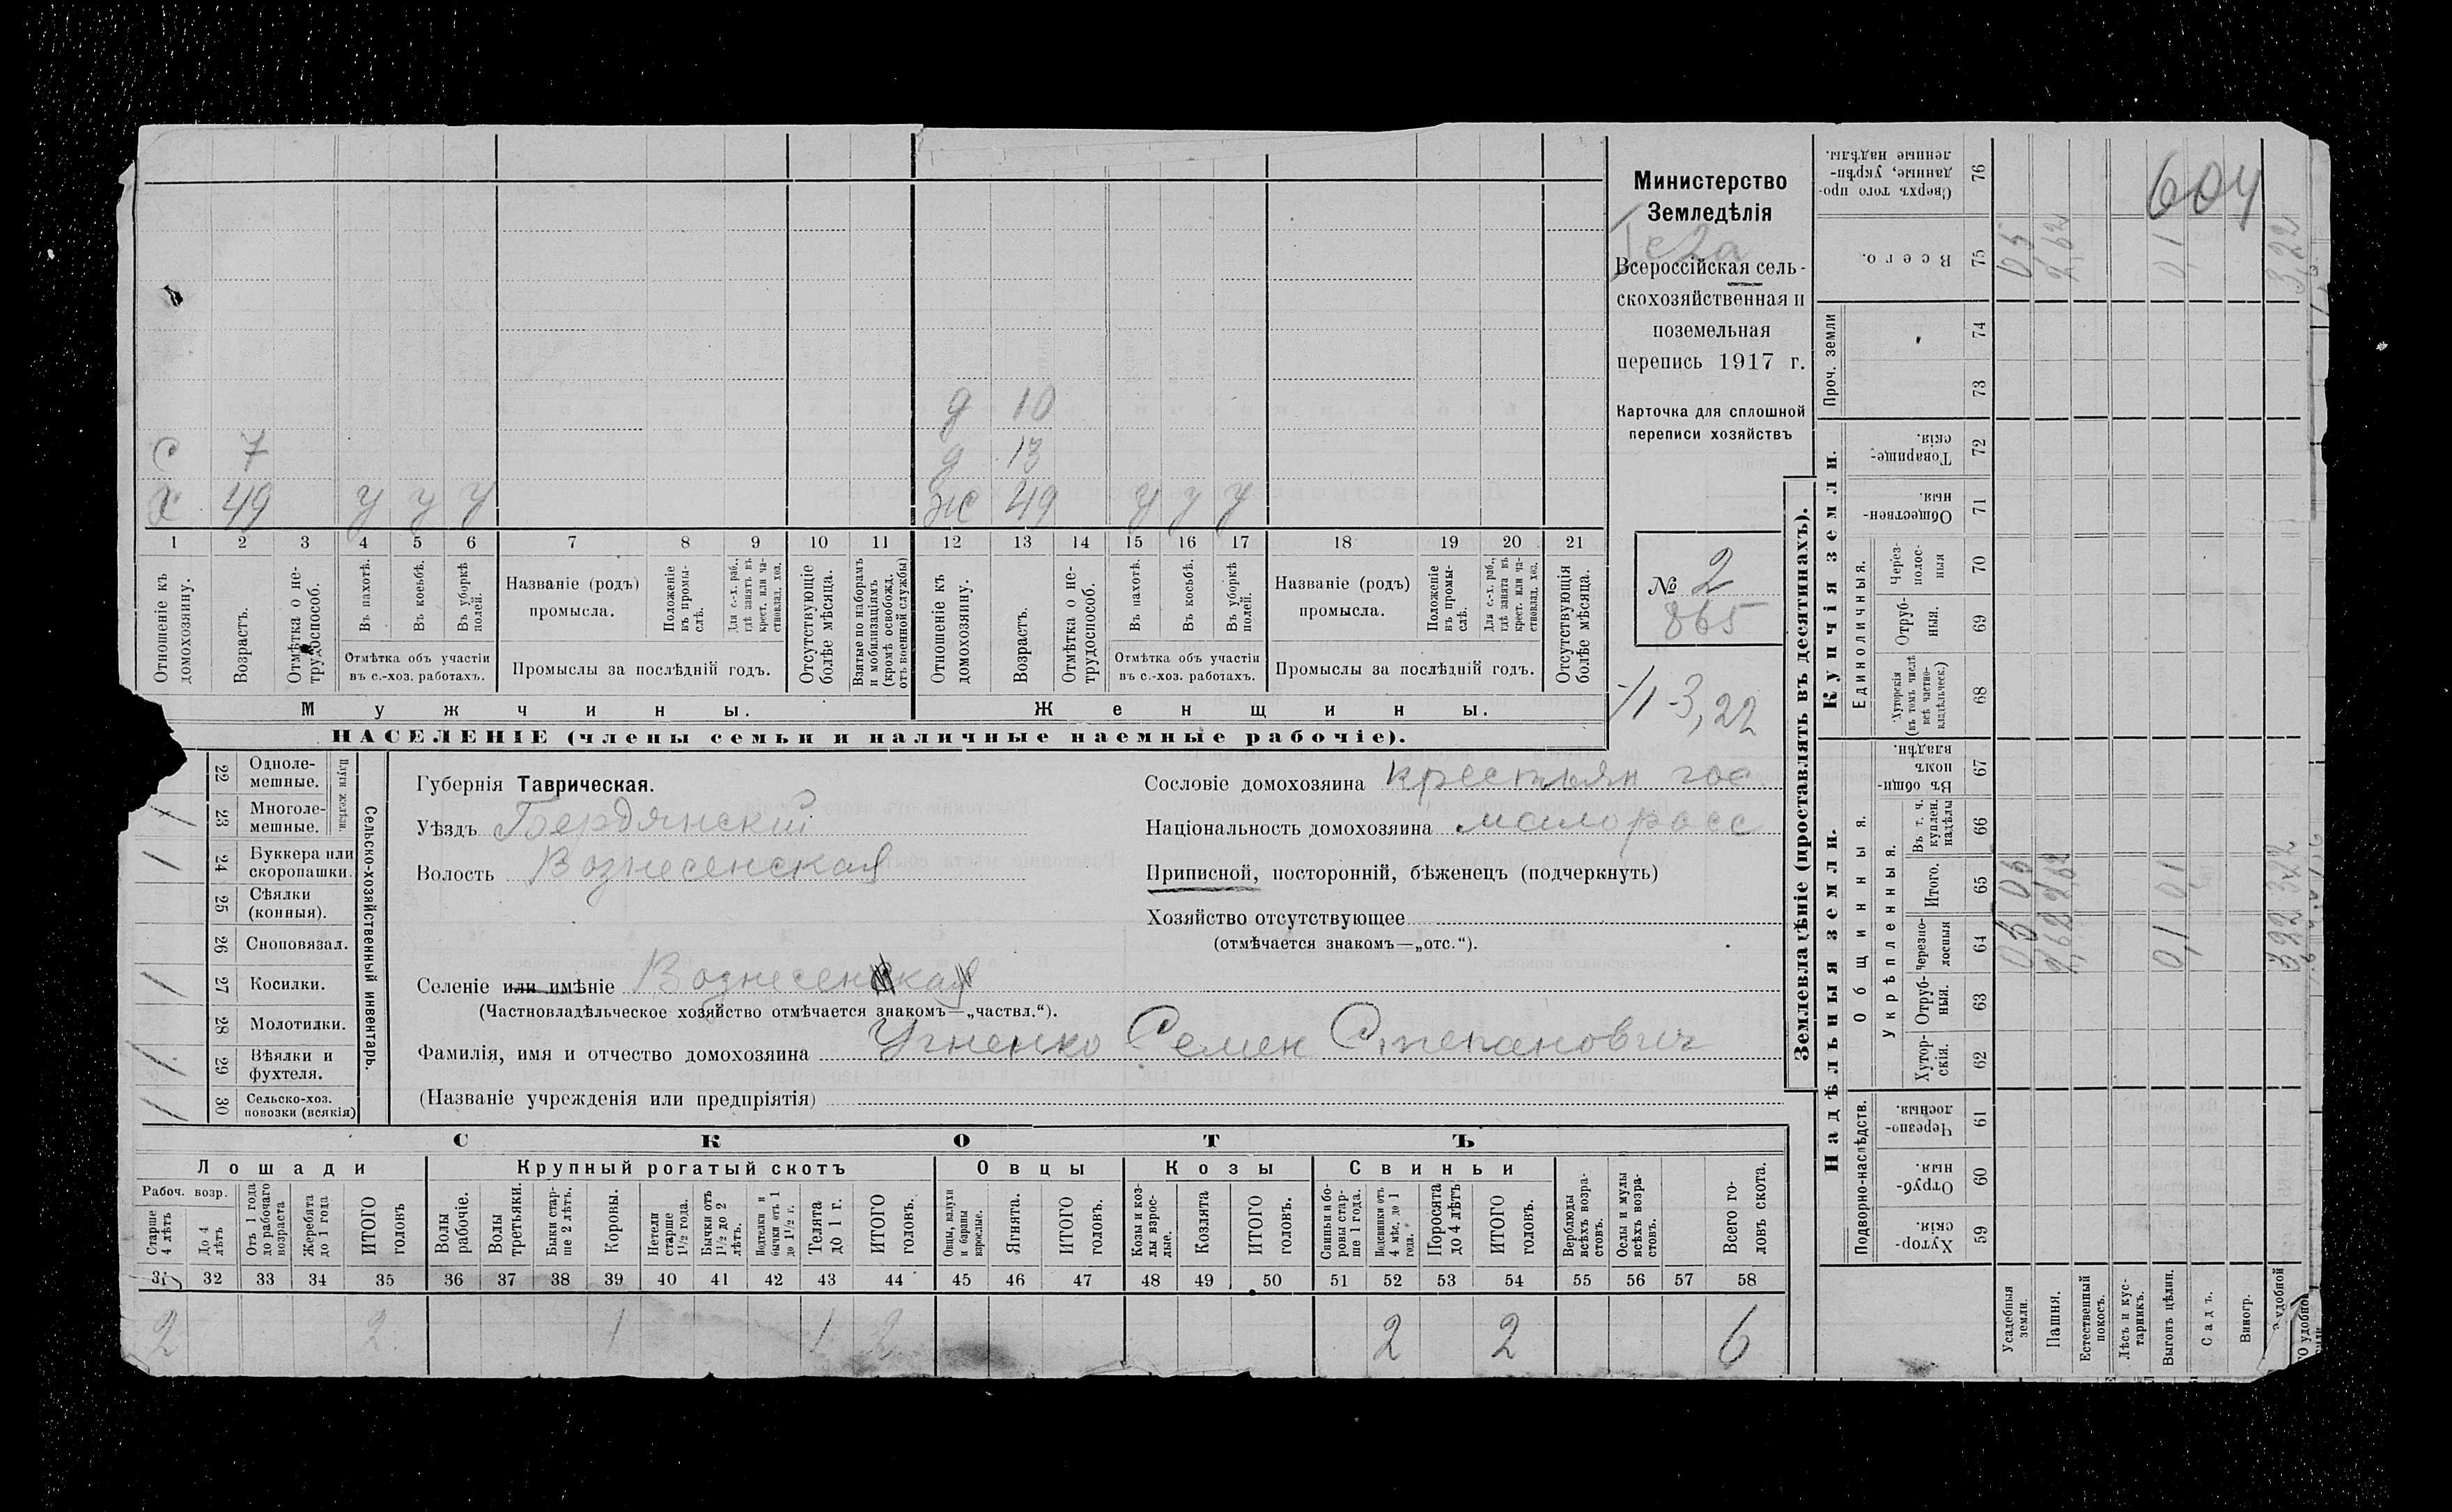 604
Министерство
Земледѣлія
Всероссійская сель-
скохозяйственная и
поземельная
перепись 1917 г.
Карточка для сплошной
переписи хозяйствъ
№ 2
865
3,22
д 10
с 7 д 13
х 49 у у у ж 49 у у у
1 2 3 4 5 6 7 8 9 10 11 12 13 14 15 16 17 18 19 20 21
Отношеніе къ домохозяину.
Возрастъ.
Отмѣтка о не-трудоспособ.
Въ пахотѣ.
Въ косьбѣ.
Въ уборкѣ полей.
Отмѣтка объ участіи
въ с.-хоз. работахъ.
Названіе (родъ)
промысла.
Положеніе въ промы-слѣ.
Для с.-х. раб., гдѣ занятъ въ крест. или ча-стновлад. хоз.
Промыслы за послѣдній годъ.
Отсутствующіе болѣе мѣсяца.
Взятые по наборамъ и мобилизаціямъ (кромѣ освобожд. отъ военной службы)
Отношеніе къ домохозяину.
Возрастъ.
Отмѣтка о не-трудоспособ.
Въ пахотѣ.
Въ косьбѣ.
Въ уборкѣ полей.
Отмѣтка объ участіи
въ с.-хоз. работахъ.
Названіе (родъ)
промысла.
Положеніе въ промы-слѣ.
Для с.-х. раб., гдѣ занята въ крест. или ча-стновлад. хоз.
Промыслы за послѣдній годъ.
Отсутствующія болѣе мѣсяца.
Мужчины. Женщины.
НАСЕЛЕНІЕ (члены семьи и наличные наемные рабочіе).
Сельско-хозяйственный инвентарь.
22 Одноле-мешные.
/ 23 Многоле-мешные.
/ 24 Буккера или скоропашки.
25 Сѣялки (конныя).
26 Сноповязал.
/ 27 Косилки.
28 Молотилки.
/ 29 Вѣялки и фухтеля.
/ 30 Сельско-хоз. повозки (всякія)
Губернія Таврическая.
Уѣздъ Бердянский
Волость Вознесенская
Селеніе или имѣніе Вознесенская
(Частновладѣльческое хозяйство отмѣчается знакомъ—„частвл.“).
Сословіе домохозяина крестьян гос
Національность домохозяина малоросс
Приписной, посторонній, бѣженецъ (подчеркнуть)
Хозяйство отсутствующее
(отмѣчается знакомъ—„отс.“).
Фамилія, имя и отчество домохозяина Угненко Семен Степанович
(Названіе учрежденія или предпріятія)
СКОТЪ
Лошади Крупный рогатый скотъ Овцы Козы Свиньи
Рабоч. возр.
Старше 4 лѣтъ
До 4 лѣтъ
Отъ 1 года до рабочаго возраста
Жеребята до 1 года
ИТОГО головъ
Волы рабочіе.
Волы третьяки.
Быки стар-ше 2 лѣтъ.
Коровы.
Нетели старше 1½ года.
Бычки отъ 1½ до 2 лѣтъ.
Подтелки и бычки отъ 1 до 1½ г.
Телята до 1 г.
ИТОГО головъ.
Овцы, валухи и бараны взрослые.
Ягнята.
ИТОГО головъ.
Козы и коз-лы взрос-лые.
Козлята
ИТОГО головъ.
Свиньи и бо-ровы стар-ше 1 года.
Подсвинки отъ 4 мѣс. до 1 года.
Поросята до 4 лѣтъ
ИТОГО головъ.
Верблюды всѣхъ возра-стовъ.
Ослы и мулы всѣхъ возра-стовъ.
Всего го-ловъ скота.
31 32 33 34 35 36 37 38 39 40 41 42 43 44 45 46 47 48 49 50 51 52 53 54 55 56 57 58
2 2 1 1 2 2 2 6
Землевладѣніе (проставлять въ десятинахъ).
Купчія земли.
Надѣльныя земли.
Проч. земли
Единоличныя.
Общинныя.
Укрѣпленныя.
Подворно-наслѣдств.
76 Сверхъ того про-данные, укрѣп-ленные надѣлы.
75 Всего. 0,5 2,62 0,1 3,22
74
73
72 Товарище-скія.
71 Обществен-ныя.
70 Через-полос-ныя
69 Отруб-ныя.
68 Хуторскія (въ томъ числѣ всѣ частно-владѣльческ.)
67 Въ общи-номъ владѣн.
66 Въ т. ч. куплен. надѣлы
65 Итого. 0,5 2,62 0,1 3,22
64 Черезпо-лосныя 0,5 2,62 0,1 3,22
63 Отруб-ныя.
62 Хутор-скія.
61 Черезпо-лосныя.
60 Отруб-ныя.
59 Хутор-скія.
Усадебныя земли.
Пашня.
Естественный покосъ.
Лѣсъ и кус-тарникъ.
Выгонъ цѣлин.
Садъ.
Виногр.
удобной